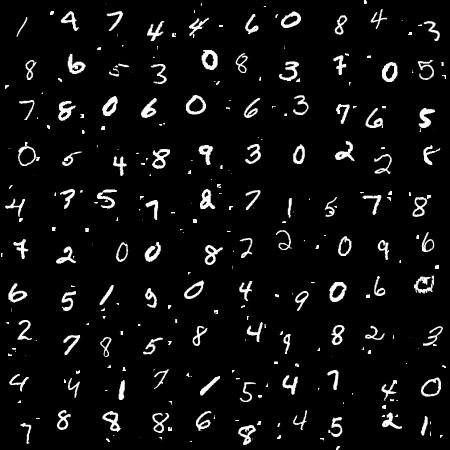 1 9 7 4 4 6 0 8 4 3
8 6 5 3 0 8 3 7 0 5
7 8 0 6 0 6 3 7 6 5
0 5 4 8 9 3 0 2 2 8
4 7 5 7 8 7 1 5 7 8
7 2 0 0 8 2 2 0 9 6
6 5 1 9 0 4 9 0 6 0
2 7 8 5 8 4 9 8 2 3
4 4 1 7 1 5 4 7 4 0
7 8 8 8 6 8 4 5 2 1